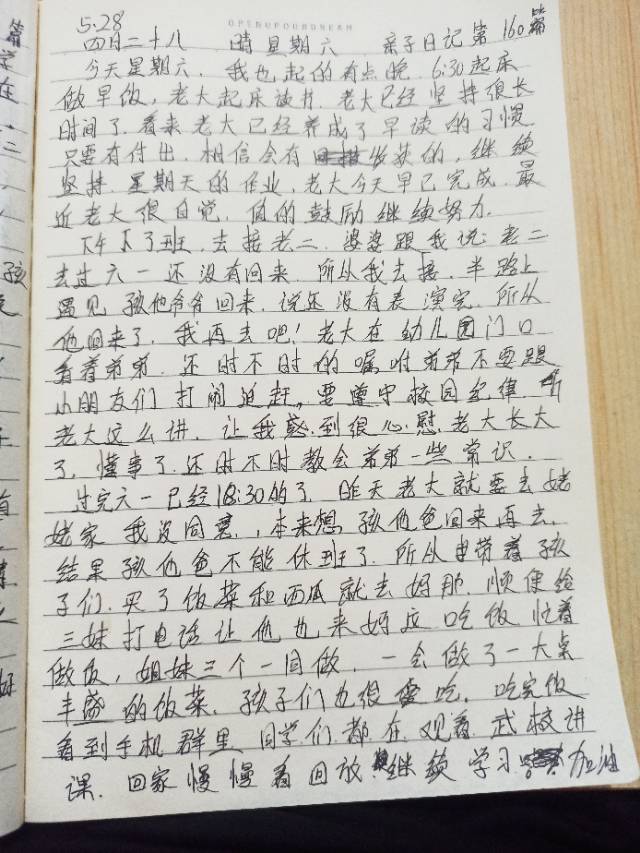 5.28
OPENUPYOURDREAM
四月二十八 晴 星期六 亲子日记第160篇
今天星期六.我也起的有点晚.6:30起床
做早饭,老大起床读书.老大已经坚持很长
时间了.看来老大已经养成了早读的习惯.
只要有付出.相信会有收获的,继续
坚持.星期天的作业,老大今天早已完成.最
近老大很自觉.值的鼓励继续努力.
下午下了班.去接老二.婆婆跟我说:老二
去过六一还没有回来.所以我去接.半路上
遇见孩他爷爷回来.说还没有表演完.所以
他回来了.我再去吧!老大在幼儿园门口
看着弟弟.还时不时的嘱咐弟弟不要跟
小朋友们打闹追赶。要遵守校园纪律.听
老大这么讲.让我感到很心慰.老大长大
了.懂事了.还时不时教会弟弟一些常识.
过完六一已经18:30的了.昨天老大就要去姥
姥家我没同意.,本来想孩他爸回来再去.
结果孩他爸不能休班了.所以由带着孩
子们.买了饭菜和西瓜就去妈那.顺便给
三妹打电话让他也来妈这吃饭忙着
做饭,姐妹三个一同做.一会做了一大桌
丰盛的饭菜.孩子们也很爱吃.吃完饭
看到手机群里同学们都在观看武校讲
课.回家慢慢看回放继续学习.加油